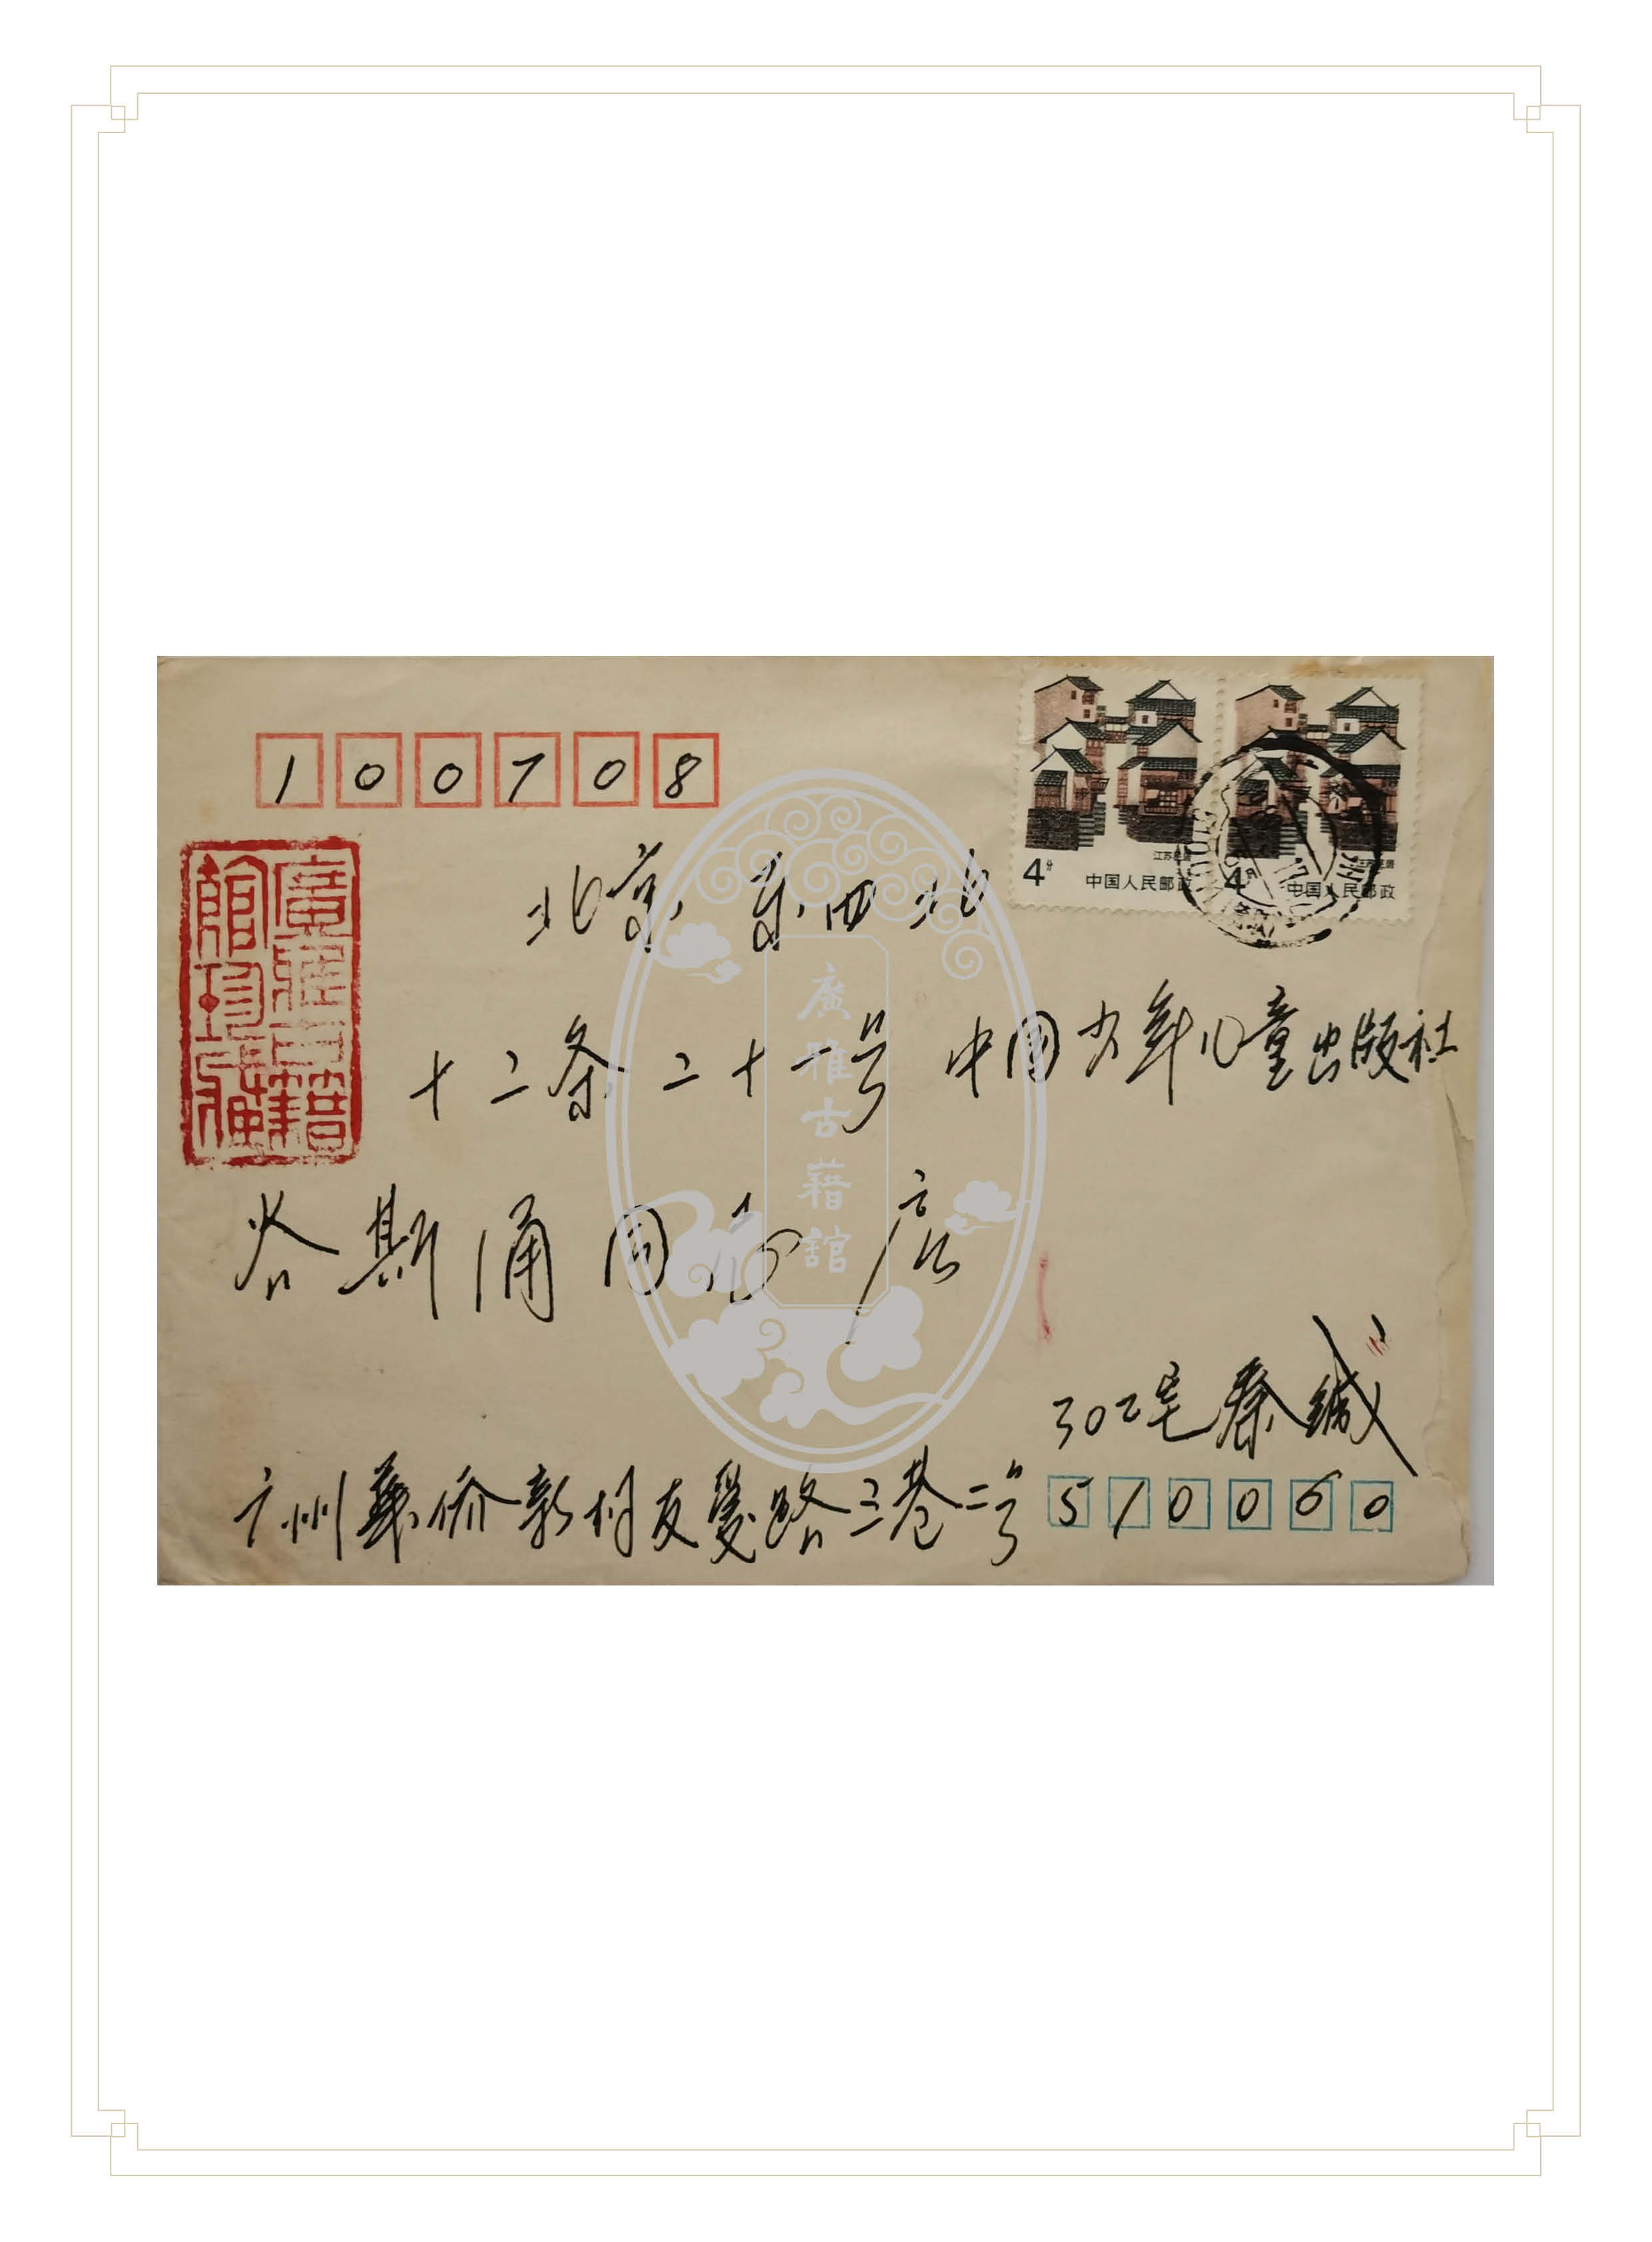 100708
江苏民居
4分
中国人民邮政
江苏民居
4分
中国人民邮政
北京 东四北
十二条二十一号 中国少年儿童出版社
斯涌同志
302宅秦缄
广州华侨新村友爱路三巷二号 510060
廣雅古籍館
廣雅古籍
館珍藏